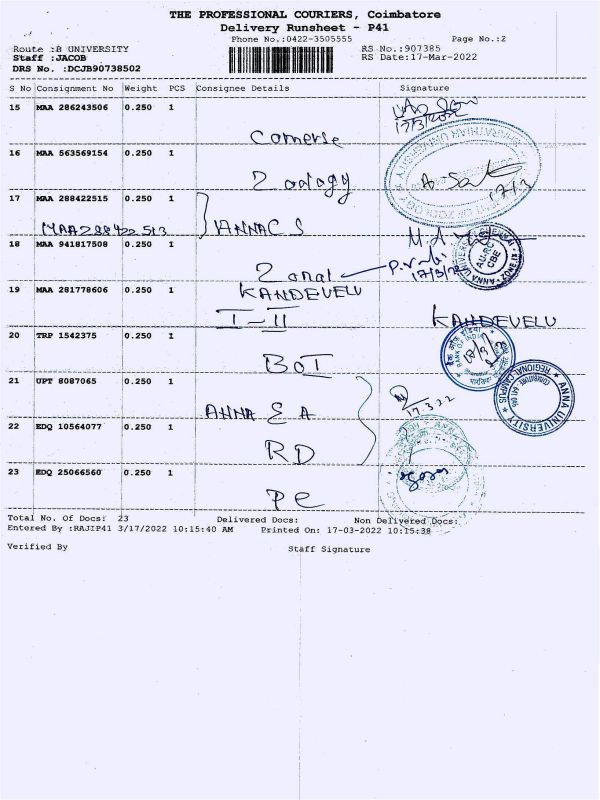 THE PROFESSIONAL COURIERS, Coimbatore
Delivery Runsheet - P41
Phone No.:0422-3505555 Page No.:2
Route :B UNIVERSITY RS No.:907385
Staff :JACOB RS Date:17-Mar-2022
DRS No. :DCJB90738502
S No Consignment No Weight PCS Consignee Details Signature
15 MAA 286243506 0.250 1
17/3/2022
Comerse
16 MAA 563569154 0.250 1
Zoology
17/3
17 MAA 288422515 0.250 1
MAA288422513 ANNA C S
18 MAA 941817508 0.250 1
Zonal
17/3/22
ANNA UNIVERSITY
AU-RC
CBE
ZONE IX
19 MAA 281778606 0.250 1
KANDEVELU
I-II KANDEVELU
20 TRP 1542375 0.250 1
BOT
BANK OF INDIA
17/3/22
21 UPT 8087065 0.250 1
ANNA E A
17.3.22
ANNA UNIVERSITY
REGIONAL CAMPUS
22 EDQ 10564077 0.250 1
RD
23 EDQ 25066560 0.250 1
PC
Total No. Of Docs: 23 Delivered Docs: Non Delivered Docs:
Entered By :RAJIP41 3/17/2022 10:15:40 AM Printed On: 17-03-2022 10:15:38
Verified By Staff Signature